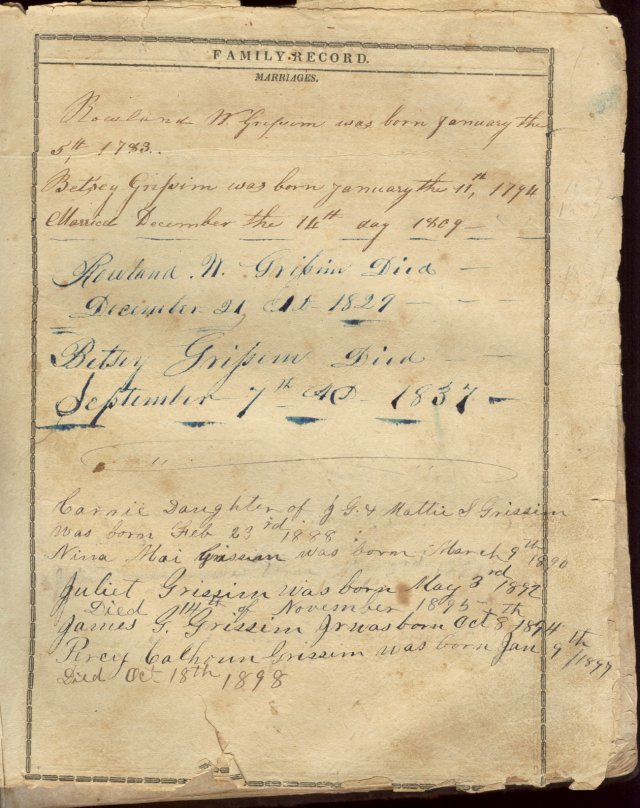 FAMILY RECORD.
MARRIAGES.
Rowland W Grissim was born January the
5th, 1783..
Betsey Grissim was born January the 11th, 1794
Married December the 14th day 1809
Rowland W. Grissim Died
December 21 AD 1829
Betsey Grissim Died
September 7th AD 1837
Carnie Daughter of J G. & Mattie S Grissim
was born Feb 23rd 1888.
Nina Mai Grissim was born March 9th 1890
Juliet Grissim was born May 3rd 1892
Died 14th of November 1895
James G. Grissim Jr was born Oct 8th 1894
Percy Calhoun Grissim was born Jan 9th 1897
Died Oct 18th 1898